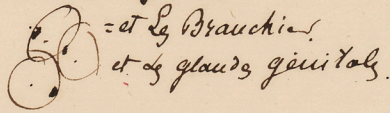 = et Les Branchies.
et les glandes génitales.